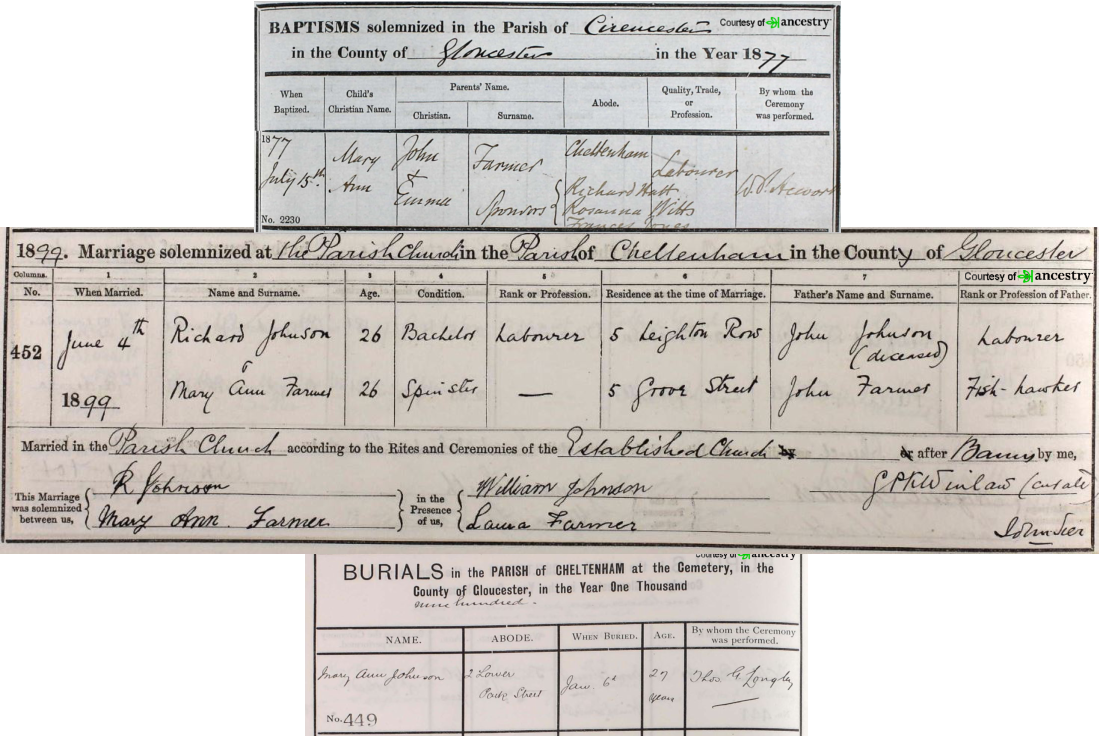 BAPTISMS solemnized in the Parish of Cirencester Courtesy of ancestry
in the County of Gloucester in the Year 1877
When Baptized. Child's Christian Name. Parents' Name. Abode. Quality, Trade, or Profession. By whom the Ceremony was performed.
Christian. Surname.
1877 July 15th. Mary Ann John & Emma Farmer Cheltenham Labourer
Sponsors { Richard Hatt
Rosanna Witts
Frances Jones
No. 2230
1899. Marriage solemnized at the Parish Church in the Parish of Cheltenham in the County of Gloucester
Courtesy of ancestry
Columns. 1 2 3 4 5 6 7
No. When Married. Name and Surname. Age. Condition. Rank or Profession. Residence at the time of Marriage. Father's Name and Surname. Rank or Profession of Father.
452 June 4th 1899 Richard Johnson 26 Bachelor Labourer 5 Leighton Row John Johnson (deceased) Labourer
& Mary Ann Farmer 26 Spinster — 5 Grove Street John Farmer Fish-hawker
Married in the Parish Church according to the Rites and Ceremonies of the Established Church by or after Banns by me,
This Marriage was solemnized between us, { R Johnson
Mary Ann Farmer } in the Presence of us, { William Johnson
Laura Farmer
(curate)
Courtesy of ancestry
BURIALS in the PARISH of CHELTENHAM at the Cemetery, in the
County of Gloucester, in the Year One Thousand
nine hundred.
NAME. ABODE. WHEN BURIED. AGE. By whom the Ceremony was performed.
Mary Ann Johnson 2 Lower Park Street Jan. 6th 27 years Thos. G. Longley
No. 449